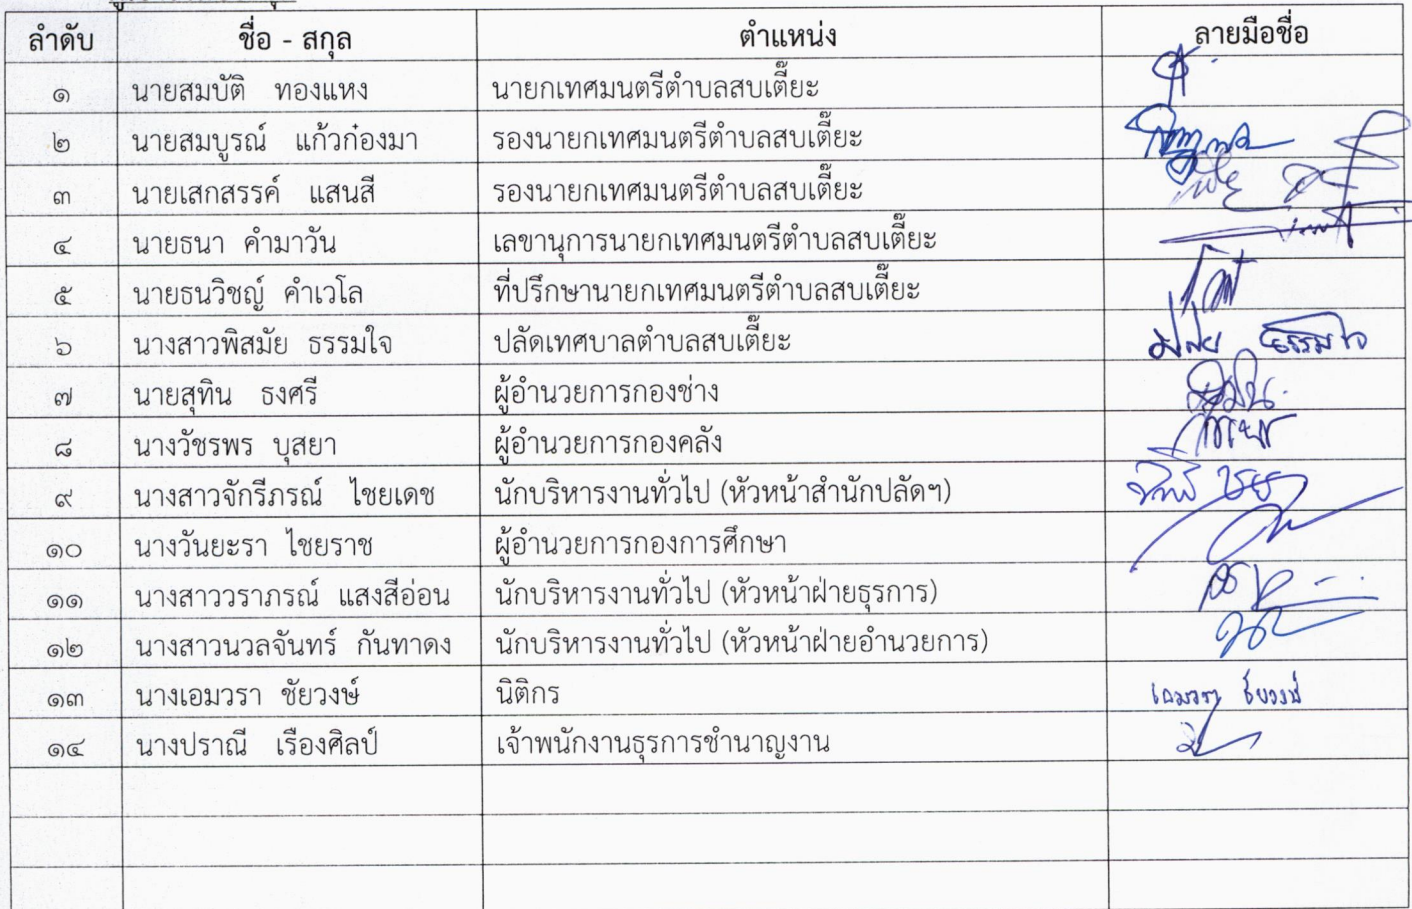 ลำดับ ชื่อ - สกุล ตำแหน่ง ลายมือชื่อ
๑ นายสมบัติ ทองแหง นายกเทศมนตรีตำบลสบเตี๊ยะ
๒ นายสมบูรณ์ แก้วก๋องมา รองนายกเทศมนตรีตำบลสบเตี๊ยะ
๓ นายเสกสรรค์ แสนสี รองนายกเทศมนตรีตำบลสบเตี๊ยะ
๔ นายธนา คำมาวัน เลขานุการนายกเทศมนตรีตำบลสบเตี๊ยะ
๕ นายธนวิชญ์ คำเวโล ที่ปรึกษานายกเทศมนตรีตำบลสบเตี๊ยะ
๖ นางสาวพิสมัย ธรรมใจ ปลัดเทศบาลตำบลสบเตี๊ยะ ธรรมใจ
๗ นายสุทิน ธงศรี ผู้อำนวยการกองช่าง
๘ นางวัชรพร บุสยา ผู้อำนวยการกองคลัง
๙ นางสาวจักรีภรณ์ ไชยเดช นักบริหารงานทั่วไป (หัวหน้าสำนักปลัดฯ)
๑๐ นางวันยะรา ไชยราช ผู้อำนวยการกองการศึกษา
๑๑ นางสาววราภรณ์ แสงสีอ่อน นักบริหารงานทั่วไป (หัวหน้าฝ่ายธุรการ)
๑๒ นางสาวนวลจันทร์ กันทาดง นักบริหารงานทั่วไป (หัวหน้าฝ่ายอำนวยการ)
๑๓ นางเอมวรา ชัยวงษ์ นิติกร เอมวรา ชัยวงษ์
๑๔ นางปราณี เรืองศิลป์ เจ้าพนักงานธุรการชำนาญงาน